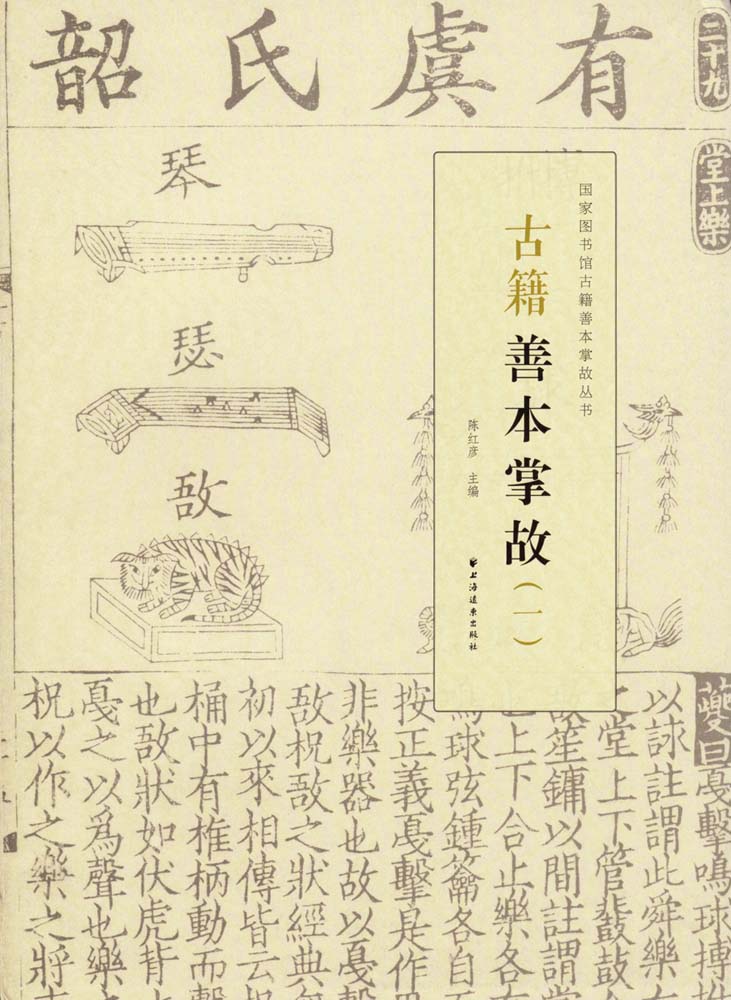 二十九
有虞氏韶
堂上樂
琴
瑟
敔
国家图书馆古籍善本掌故丛书
古籍善本掌故(一)
陈红彦 主编
上海远东出版社
夔曰戞擊鳴球搏
以詠註謂此舜樂
堂上下管鼗鼓
笙鏞以間註謂堂
上下合止樂各
球弦鍾籥各自
按正義戞擊是作
非樂器也故以戞
敔柷敔之狀經典
初以來相傳皆云
桶中有椎柄動而擊
也敔狀如伏虎背
戞之以爲聲也樂
柷以作之樂之將